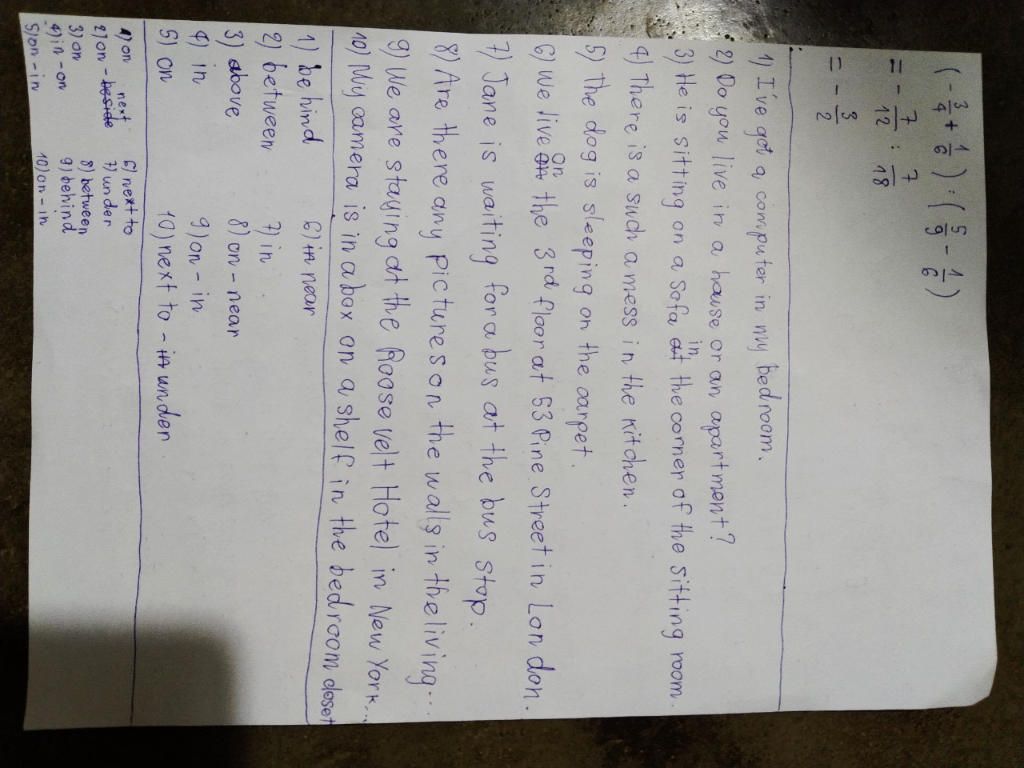 (-3/4 + 1/6) : (5/9 - 1/6)
= - 7/12 : 7/18
= - 3/2
1) I've got a computer in my bedroom.
2) Do you live in a hause or an apartment?
3) He is sitting on a sofa in the corner of the sitting room.
4) There is a such a mess in the kitchen.
5) The dog is sleeping on the carpet.
6) We live on the 3rd floor at 53 Pine Street in London.
7) Jane is waiting for a bus at the bus stop.
8) Are there any pictures on the walls in the living...
9) We are staying at the Roosevelt Hotel in New York...
10) My camera is in a box on a shelf in the bedroom closet
1) behind
2) between
3) above
4) in
5) on
6) near
7) in
8) on - near
9) on - in
10) next to - under
1) on
2) on - next
3) on
4) in - on
5) on - in
6) next to
7) under
8) between
9) behind
10) on - in